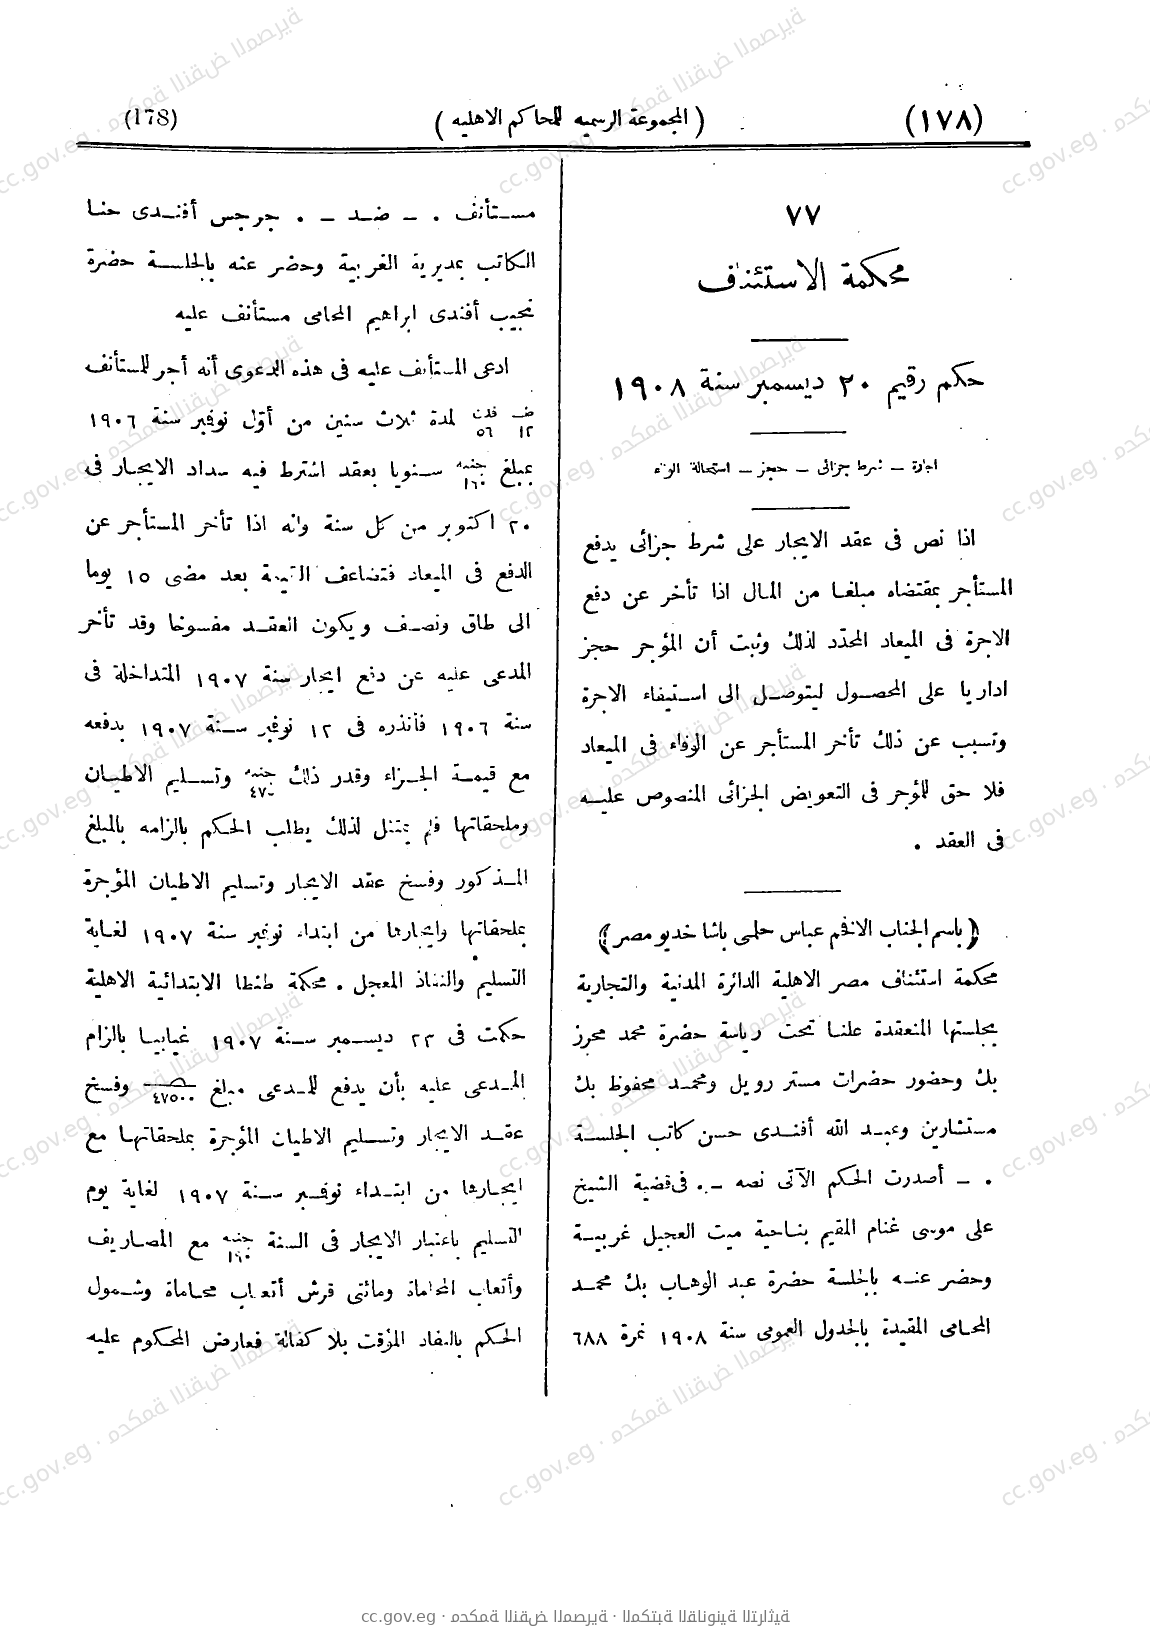 (١٧٨)
( المجموعة الرسميه للمحاكم الاهليه )
(178)
٧٧
محكمة الاستئناف
حكم رقيم ٢٠ ديسمبر سنة ١٩٠٨
اجارة – شرط جزائى – حجز – استحالة الوفاء
اذا نص فى عقد الايجار على شرط جزائى يدفع
المستأجر بمقتضاه مبلغا من المال اذا تأخر عن دفع
الاجرة فى الميعاد المحدّد لذلك وثبت أن المؤجر حجز
اداريا على المحصول ليتوصل الى استيفاء الاجرة
وتسبب عن ذلك تأخر المستأجر عن الوفاء فى الميعاد
فلا حق للمؤجر فى التعويض الجزائى المنصوص عليه
فى العقد .
(باسم الجناب الافخم عباس حلمى باشا خديو مصر)
محكمة استئناف مصر الاهلية الدائرة المدنية والتجارية
بجلستها المنعقدة علنا تحت رياسة حضرة محمد محرز
بك وحضور حضرات مستر رويل ومحمد محفوظ بك
مستشارين وعبد الله أفندى حسن كاتب الجلسة
. – أصدرت الحكم الآتى نصه – . فى قضية الشيخ
على موسى غنام المقيم بناحية ميت العجيل غربية
وحضر عنه بالجلسة حضرة عبد الوهاب بك محمد
المحامى المقيدة بالجدول العمومى سنة ١٩٠٨ نمرة ٦٨٨
مستأنف . – ضد – . جرجس أفندى حنا
الكاتب بمديرية الغربية وحضر عنه بالجلسة حضرة
نجيب أفندى ابراهيم المحامى مستأنف عليه
ادعى المستأنف عليه فى هذه الدعوى أنه أجر للمستأنف
ط ١٢ فدن ٥٦ لمدة ثلاث سنين من أوّل نوفمبر سنة ١٩٠٦
بمبلغ جنيه ١٦٠ سنويا بعقد اشترط فيه سداد الايجار فى
٢٠ اكتوبر من كل سنة وانه اذا تأخر المستأجر عن
الدفع فى الميعاد فتضاعف القيمة بعد مضى ١٥ يوما
الى طاق ونصف ويكون العقد مفسوخا وقد تأخر
المدعى عليه عن دفع ايجار سنة ١٩٠٧ المتداخلة فى
سنة ١٩٠٦ فأنذره فى ١٢ نوفمبر سنة ١٩٠٧ بدفعه
مع قيمة الجزاء وقدر ذلك جنيه وتسليم الاطيان
وملحقاتها فلم يمتثل لذلك يطلب الحكم بالزامه بالمبلغ
المذكور وفسخ عقد الايجار وتسليم الاطيان المؤجرة
بملحقاتها وايجارها من ابتداء نوفمبر سنة ١٩٠٧ لغاية
التسليم والنفاذ المعجل . محكمة طنطا الابتدائية الاهلية
حكمت فى ٢٣ ديسمبر سنة ١٩٠٧ غيابيا بالزام
المدعى عليه بأن يدفع للمدعى مبلغ ٤٧٥٠٠ وفسخ
عقد الايجار وتسليم الاطيان المؤجرة بملحقاتها مع
ايجارها من ابتداء نوفمبر سنة ١٩٠٧ لغاية يوم
التسليم باعتبار الايجار فى السنة جنيه ١٦٠ مع المصاريف
وأتعاب المحاماة ومائتى قرش أتعاب محاماة وشمول
الحكم بالنفاذ المؤقت بلا كفالة فعارض المحكوم عليه
cc.gov.eg · محكمة النقض المصرية · المكتبة القانونية التراثية